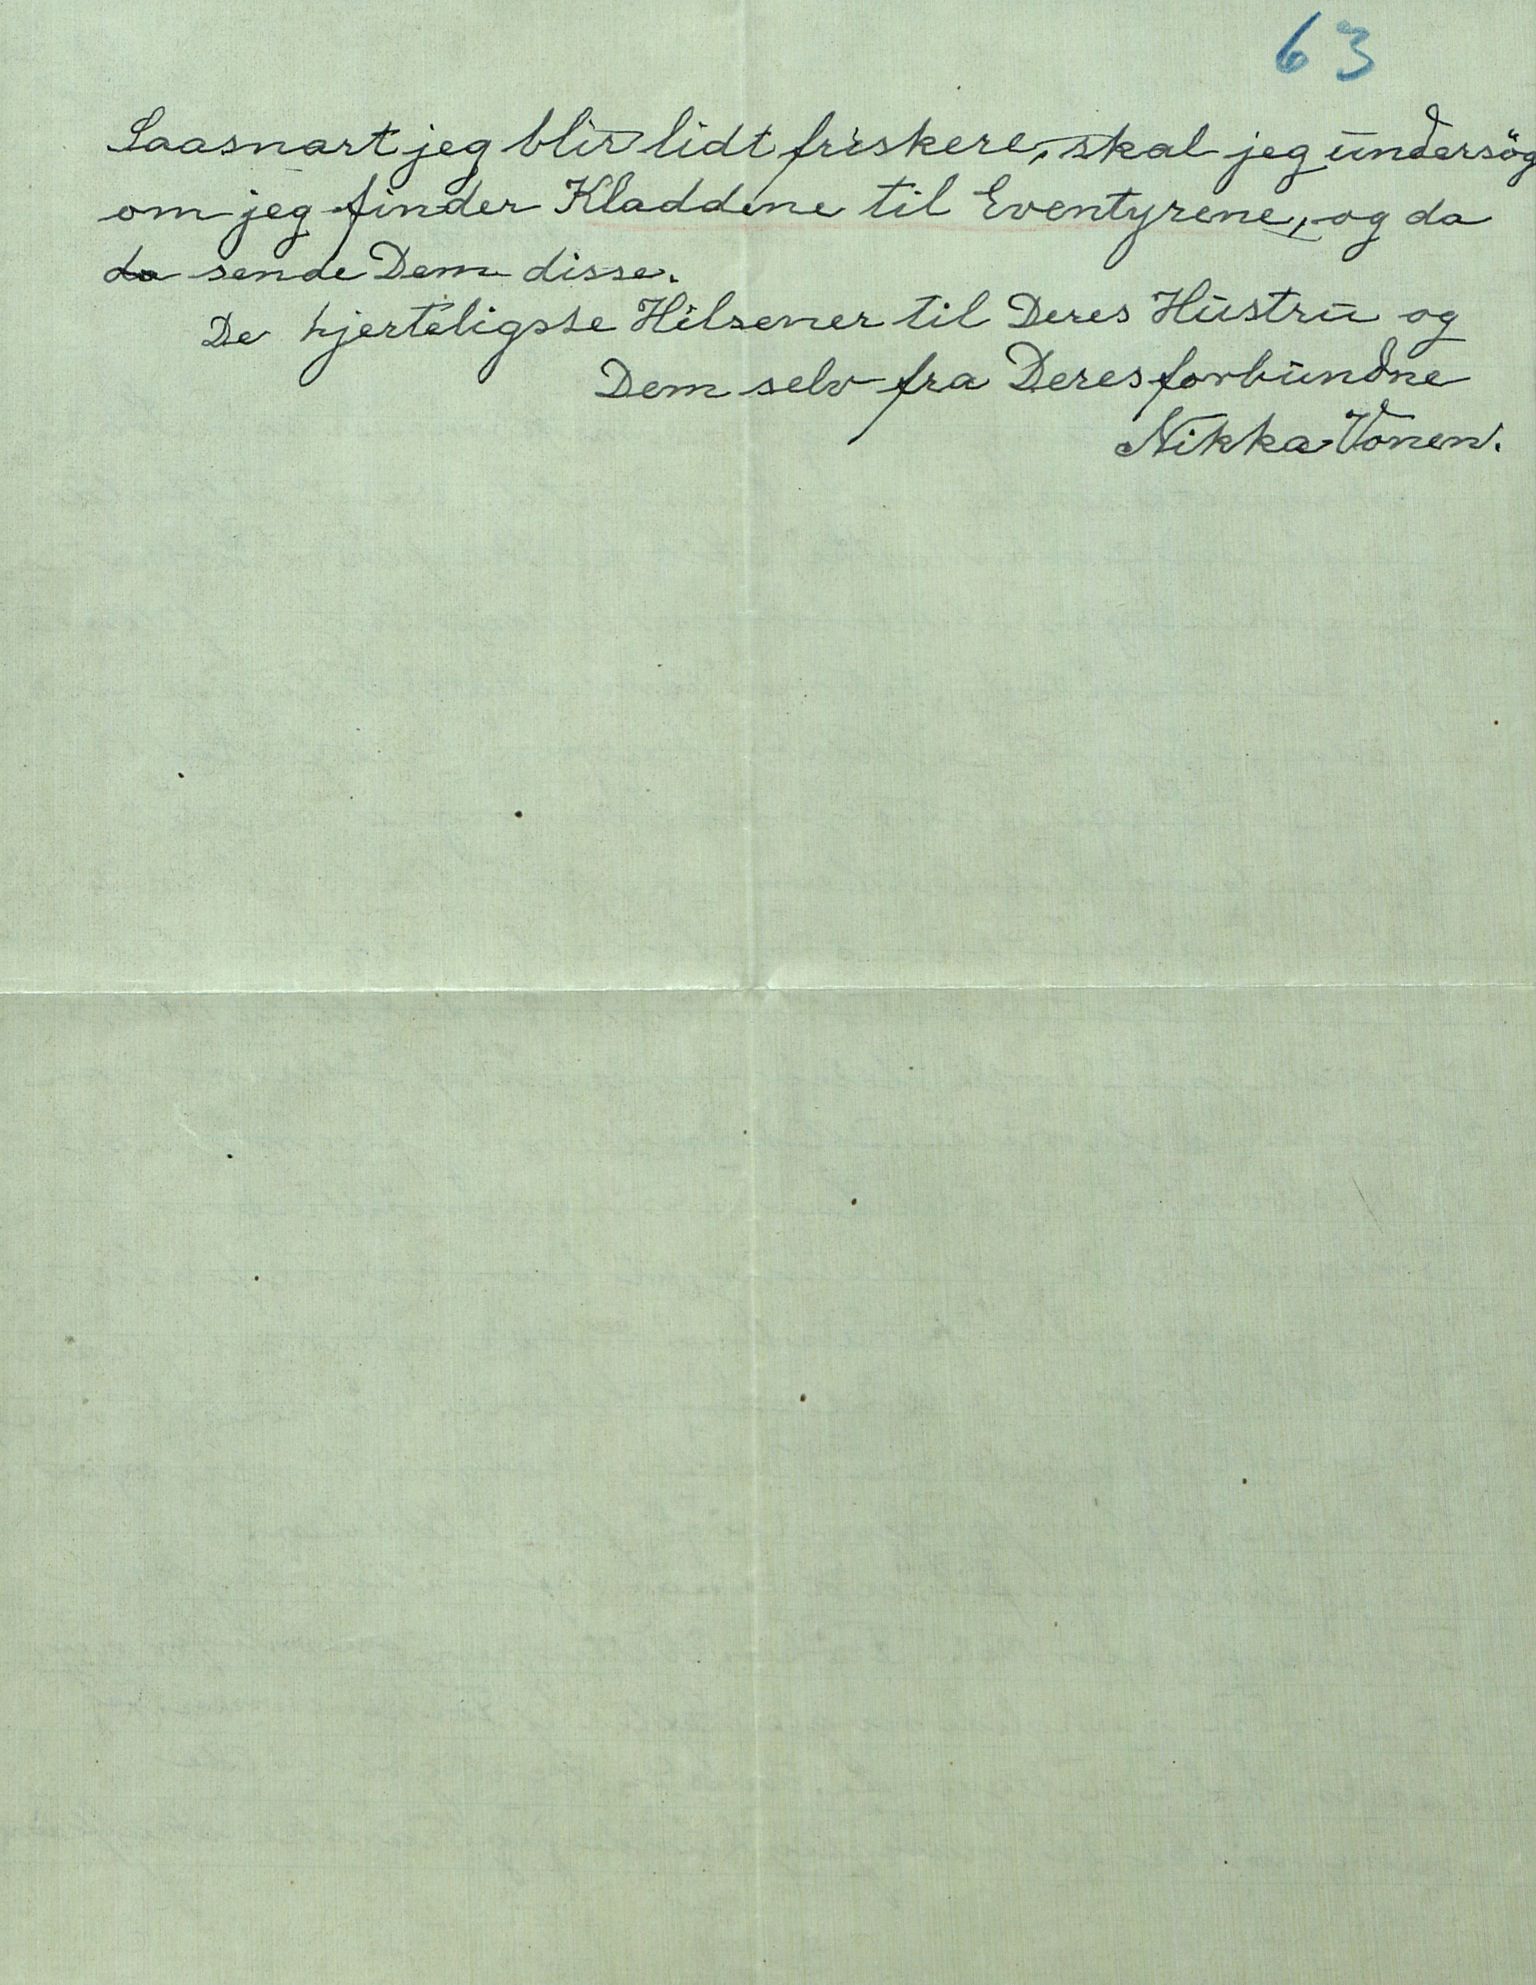 63
Saasnart jeg blir lidt friskere, skal jeg undersög
om jeg finder Kladdene til Eventyrene, og da
da sende Dem disse.
De hjerteligste Hilsener til Deres Hustru og
Dem selv fra Deres forbundne
Nikka Vonen.